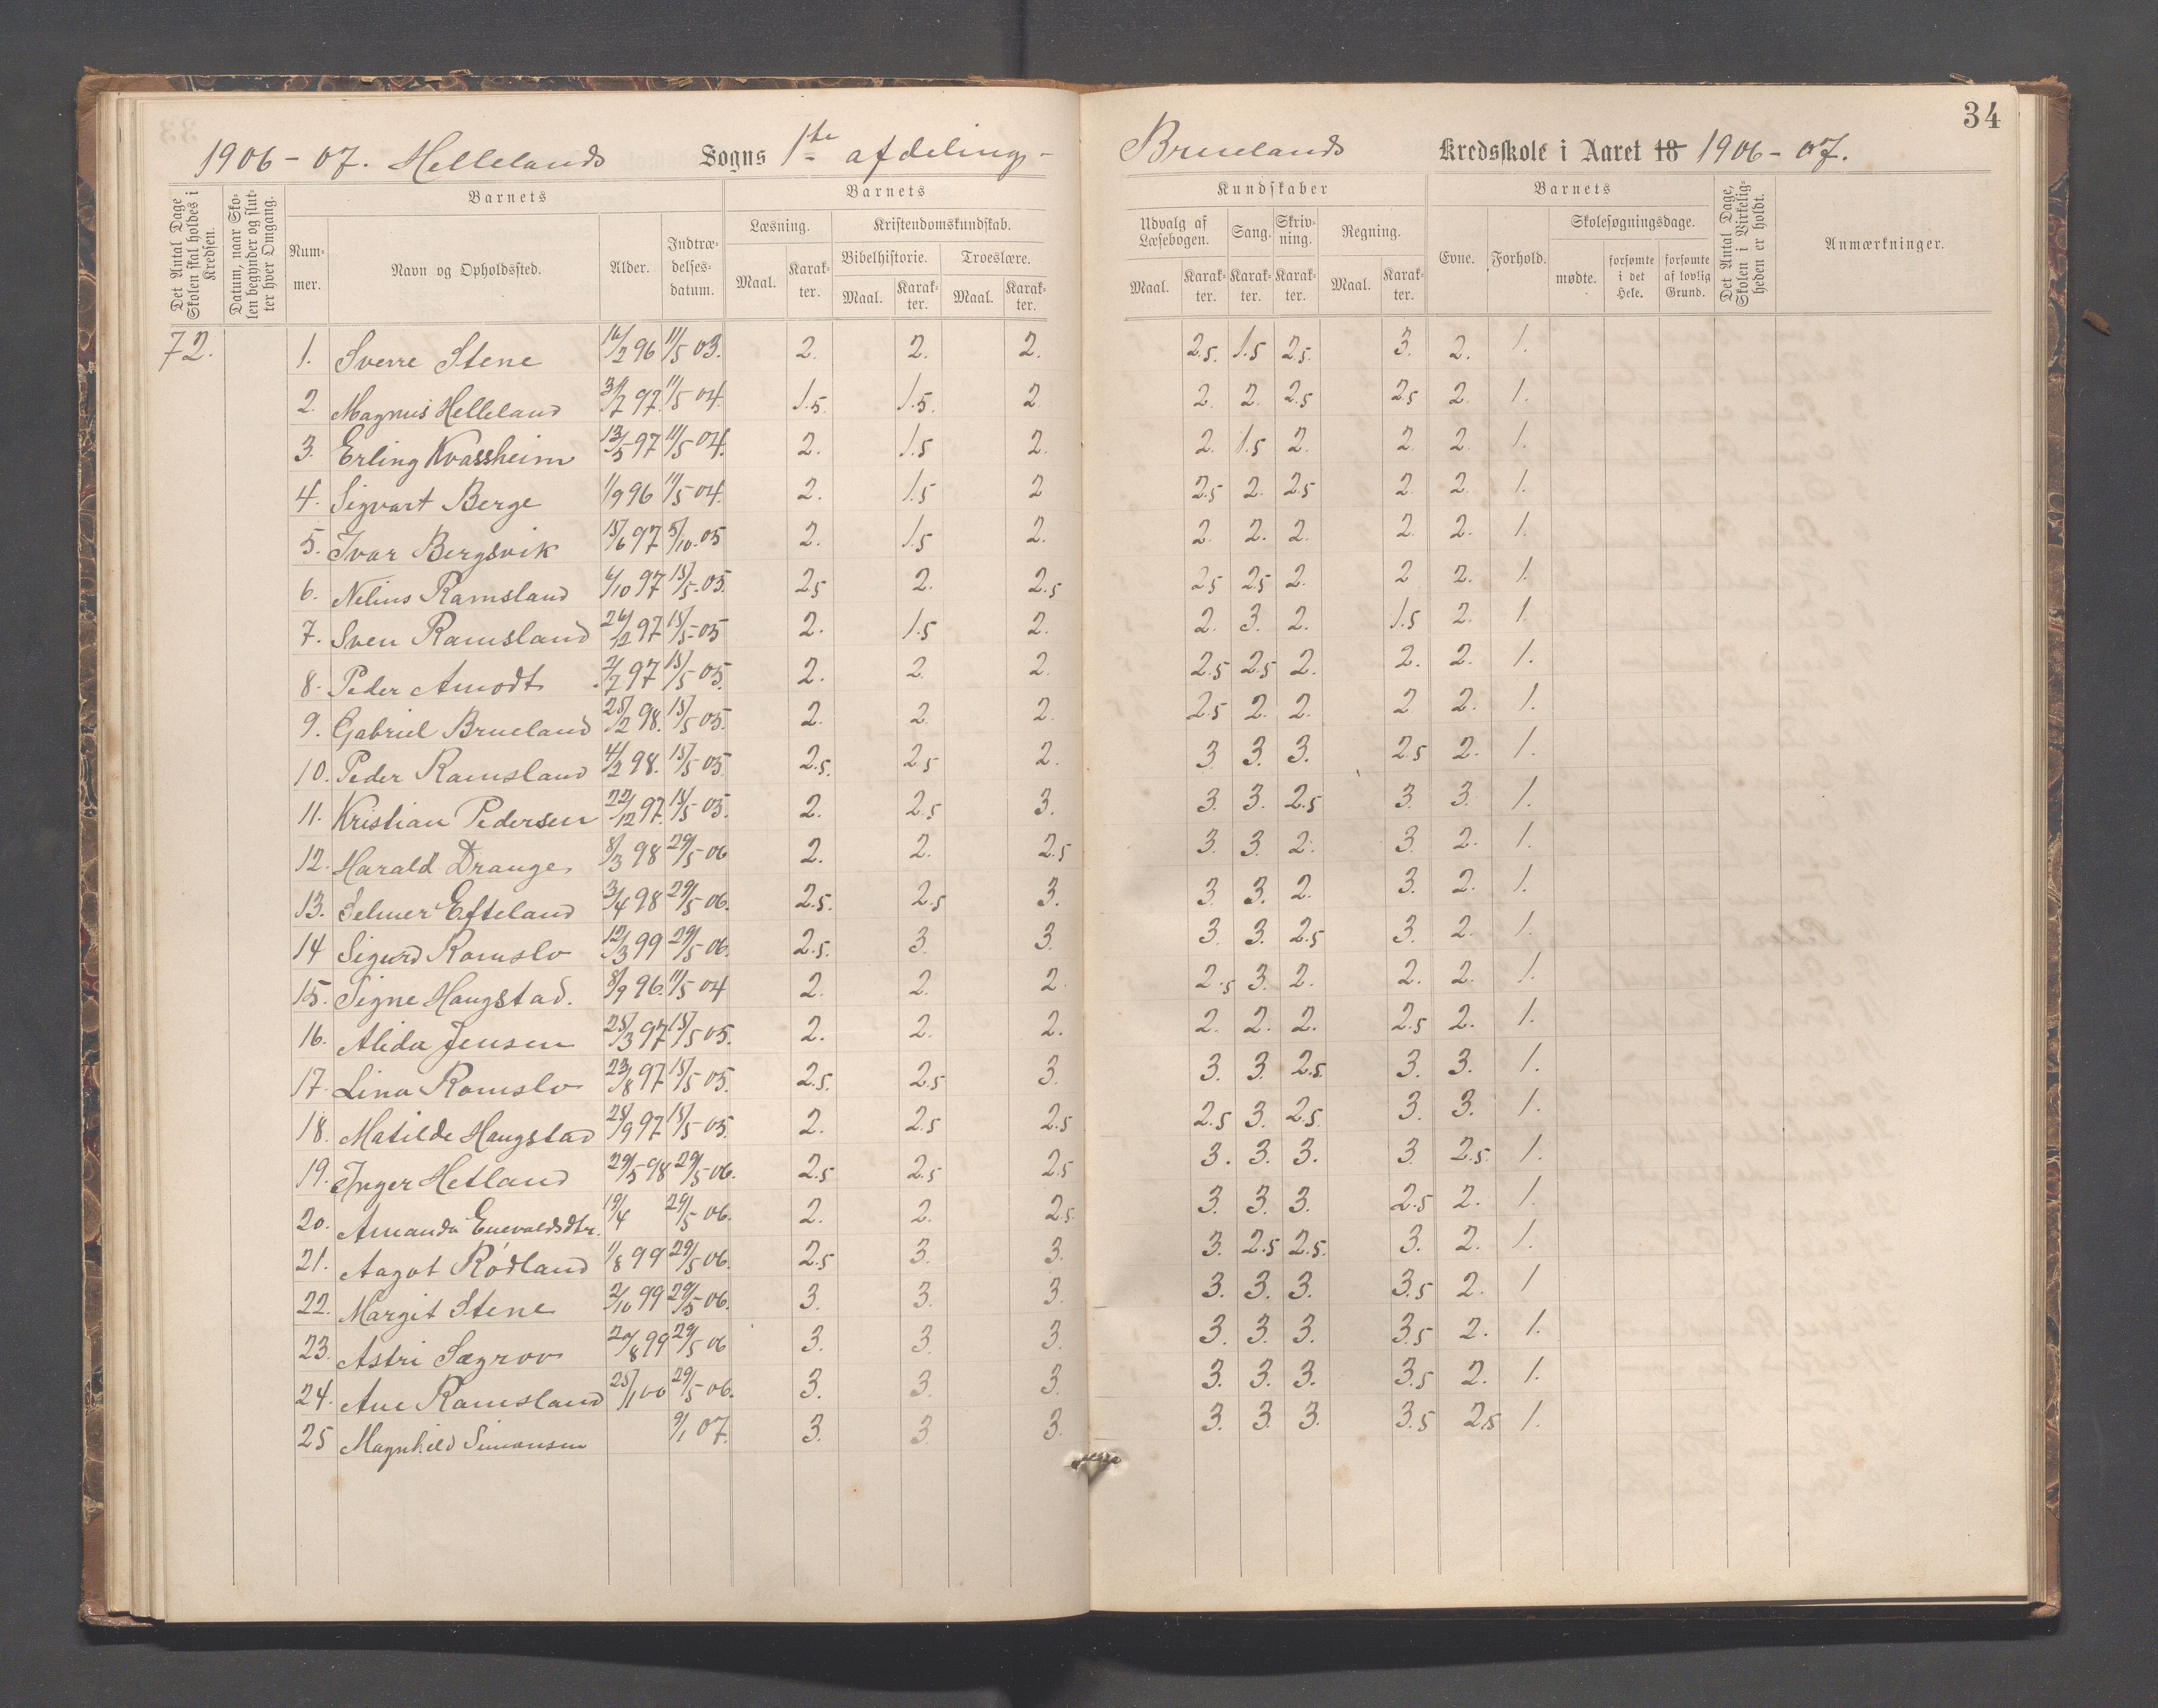 34
1906-07. Hellelands Sogns 1ste afdeling- Bruelands Kredsskole i Aaret 18 1906-07.
Det Antal Dage Skolen skal holdes i Kredsen.
Datum, naar Skolen begynder og slutter hver Omgang.
Barnets
Barnets
Kundskaber
Barnets
Det Antal Dage, Skolen i Virkeligheden er holdt.
Anmærkninger.
Nummer.
Navn og Opholdssted.
Alder.
Indtrædelsesdatum.
Læsning.
Kristendomskundskab.
Udvalg af Læsebogen.
Sang.
Skrivning.
Regning.
Evne.
Forhold.
Skolesøgningsdage.
Bibelhistorie.
Troeslære.
Maal. Karakter. Maal. Karakter. Maal. Karakter. Maal. Karakter. Karakter. Karakter. Maal. Karakter.
mødte. forsømte i det Hele. forsømte af lovlig Grund.
72. 1. Sverre Stene 16/2 96 11/5 03. 2. 2. 2. 2.5. 1.5 2.5. 3. 2. 1.
2. Magnus Helleland 97. 11/5 04. 1.5. 1.5. 2 2. 2. 2.5 2.5 2. 1.
3. Erling Kvassheim 13/5 97 11/5 04. 2. 1.5 2. 2. 1.5 2. 2 2. 1.
4. Sigvart Berge 1/9 96 11/5 04. 2. 1.5 2 2.5 2. 2.5 2. 2. 1.
5. Ivar Bergsvik 15/6 97 5/10. 05 2. 1.5 2. 2. 2. 2. 2. 2. 1.
6. Nelius Ramsland 6/10 97 15/5. 05. 2.5 2. 2.5 2.5 2.5 2. 2 2. 1.
7. Sven Ramsland 26/12 97 15/5-05 2. 1.5 2. 2. 3. 2. 1.5 2. 1.
8. Peder Amodt 2/7 97 15/5 05. 2. 2. 2. 2.5 2.5 2. 2. 2. 1.
9. Gabriel Brueland 25/2 98. 15/5 05. 2. 2. 2. 2.5 2. 2. 2 2. 1.
10. Peder Ramsland 4/2 98. 15/5 05. 2.5. 2.5 2. 3. 3. 3. 2.5 2. 1.
11. Kristian Pedersen 22/12 97. 15/5 05. 2. 2.5 3. 3. 3. 2.5 3. 3. 1.
12. Harald Drange. 8/3 98 29/5 06 2. 2. 2.5 3. 3. 2. 3. 2. 1.
13. Selmer Efteland 3/4 98 29/5 06. 2.5. 2.5 3. 3. 3. 2. 3. 2. 1.
14 Sigurd Ramslo 12/3 99 29/5 06. 2.5. 3. 3. 3. 3. 2.5 3. 2. 1.
15. Signe Haugstad. 8/9 96. 11/5 04 2. 2. 2. 2.5 3. 2. 2. 2. 1.
16. Alida Jensen 25/3 97 15/5 05. 2. 2. 2. 2. 2. 2. 2.5 2. 1.
17. Lina Ramslo 23/8 97 15/5 05. 2.5. 2.5 3. 3. 3. 2.5. 3. 3. 1.
18. Matilde Haugstad 25/9 97 15/5 05. 2. 2.5 2.5 2.5 3. 2.5. 3. 3. 1.
19. Inger Hetland 29/5 98 29/5 06. 2.5 2.5 2.5 3. 3. 3. 3 2.5. 1.
20. Amanda Enevaldsdtr. 19/4 29/5 06. 2. 2. 2.5. 3. 3. 3. 2.5 2. 1.
21. Aagot Rödland 11/8 99 29/5 06. 2.5 3. 3. 3. 2.5 2.5. 3. 2. 1.
22. Margit Stene 2/10 99 29/5 06. 3. 3. 3. 3. 3. 3. 3.5 2. 1
23. Astri Sægrov 99 29/5 06 3. 3. 3. 3. 3. 3. 3.5 2. 1.
24. Ane Ramsland 25/1 00 29/5 06. 3. 3. 3. 3. 3. 3. 3.5 2. 1.
25 Magnhild Simonsen 9/1 07. 3. 3. 3. 3. 3. 3. 3.5 2.5 1.